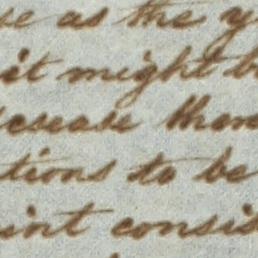 se as the y
it might b
isease than
tions to be
int consis